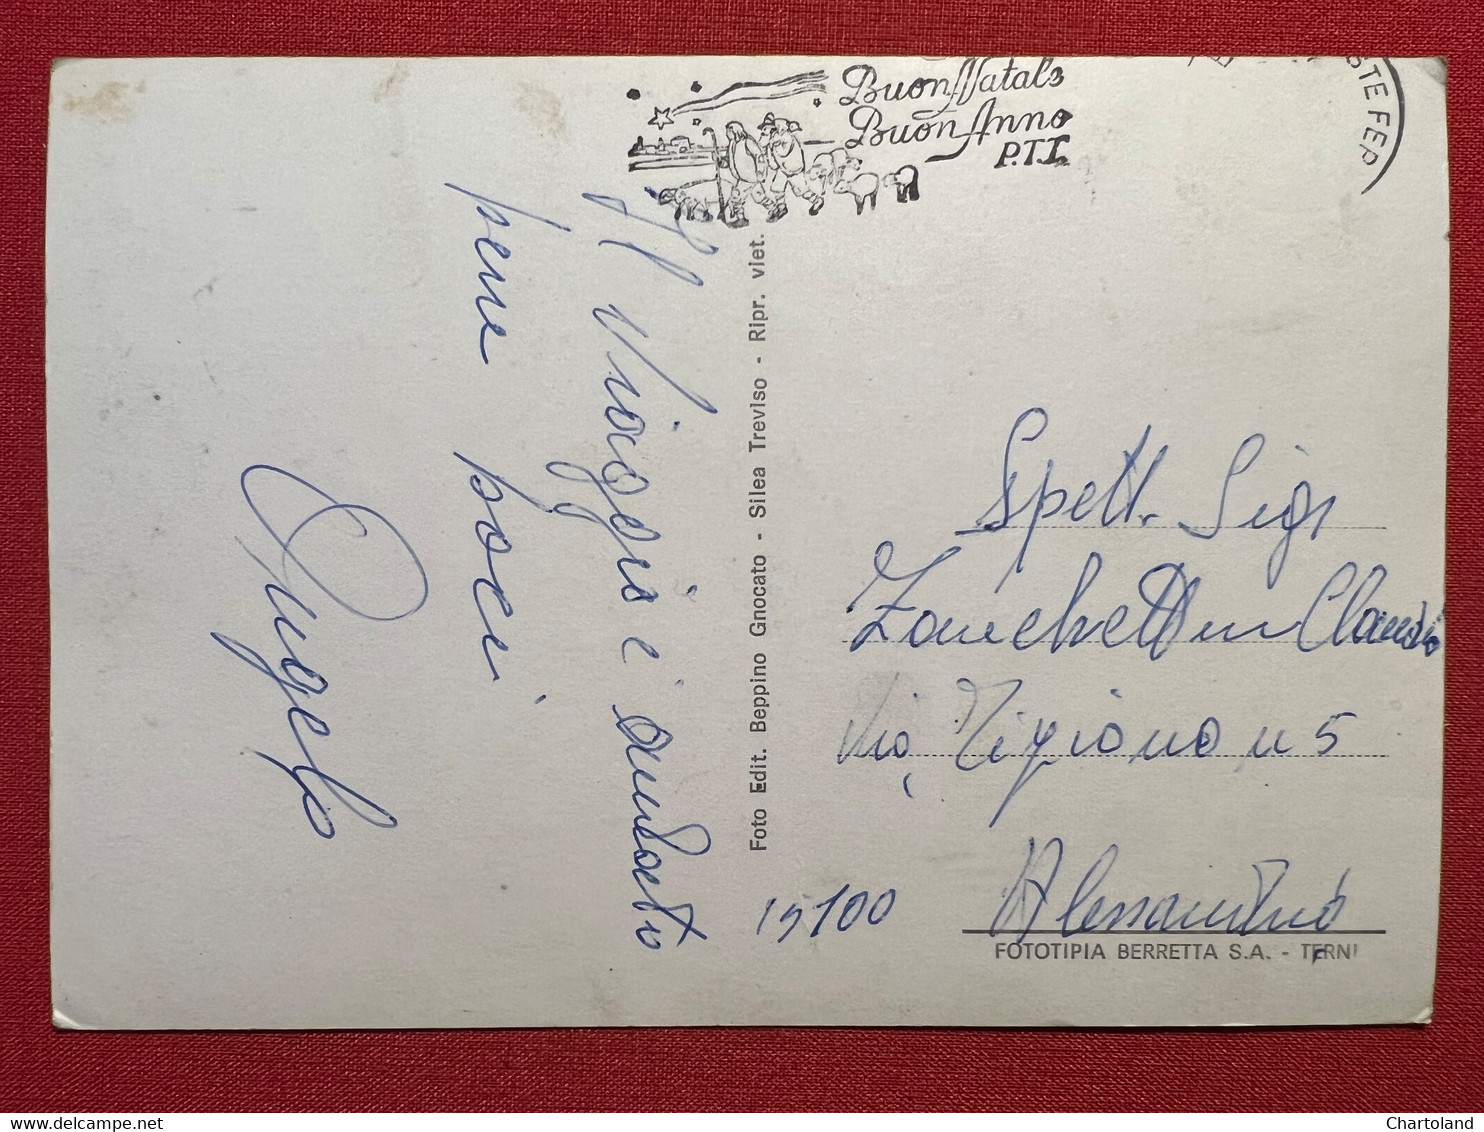 Buon Natale
Buon Anno
P.T.
STE FER
Il Viaggio è andato
pene poci
Angelo
Foto Edit. Beppino Gnocato - Silea Treviso - Ripr. viet.
Spett. Sig
Zanchettin Claudio
Via Tiziano n 5
15100 Alessandria
FOTOTIPIA BERRETTA S.A. - TERNI
Chartoland